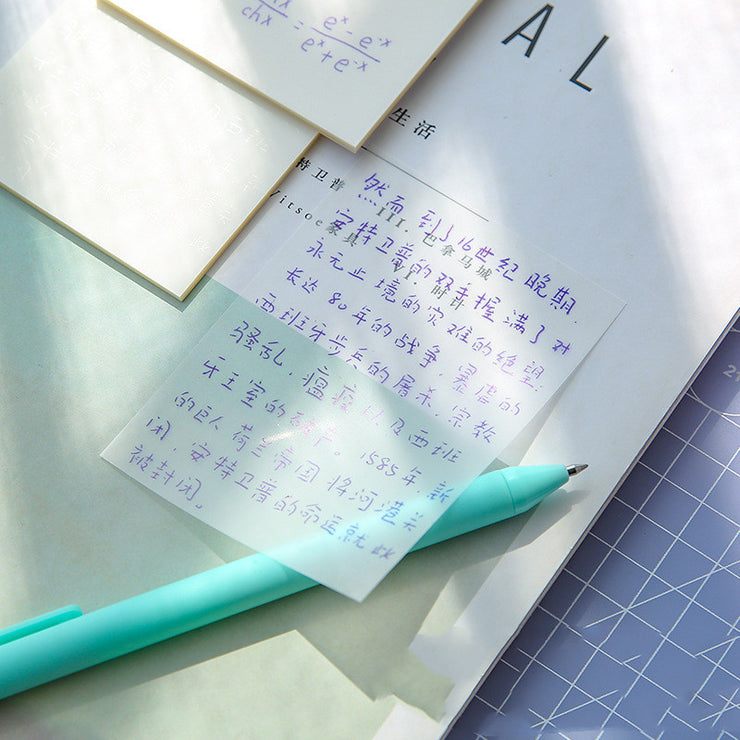 chx = e^x - e^-x
e^x + e^-x
AL
生活
特卫普
itsoe家具
III. 巴拿马城
VI.
然而 到了16世纪 晚期.
安特卫普的双手握满了对
永无止境的灾难的绝望.
长达80年的战争, 暴虐的
西班牙步兵的屠杀, 宗教
骚乱, 瘟疫以及西班
牙王室的破产。1585年 新
的巨人荷兰帝国将河港关
闭, 安特卫普的命运就此
被封闭。